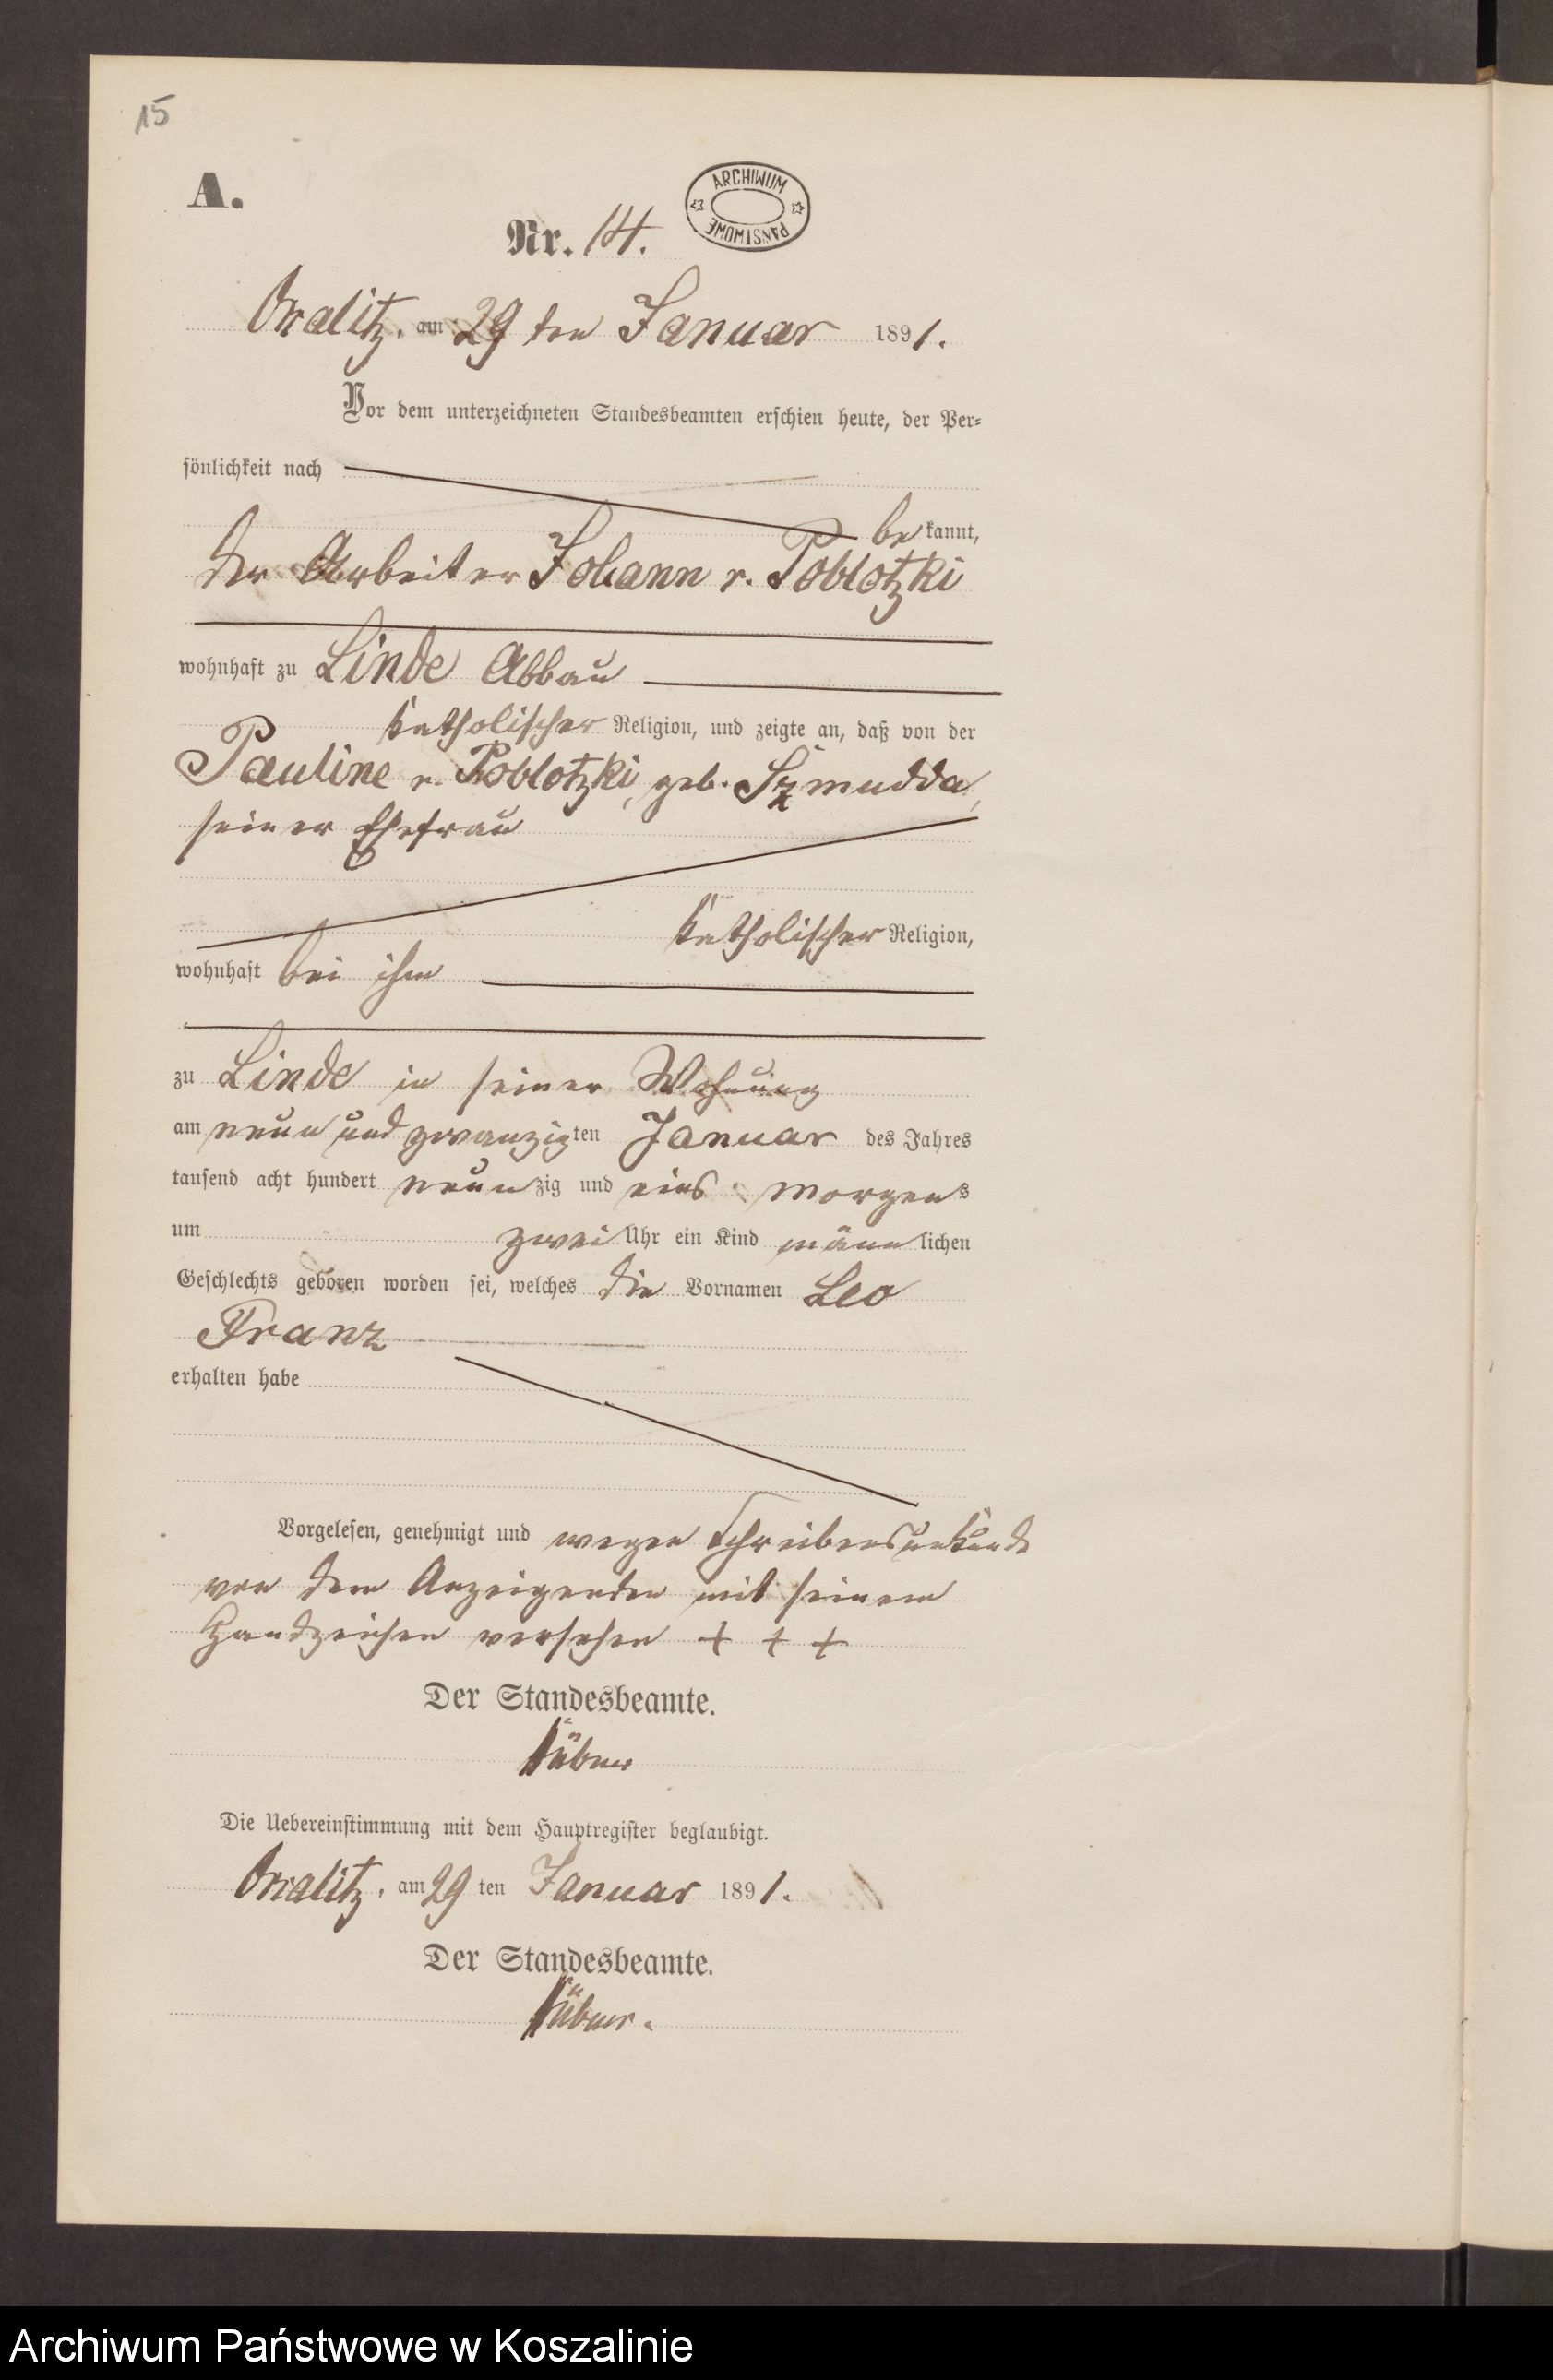 15
A.
ARCHIWUM PAŃSTWOWE
Nr. 14.
Wualitz, am 29 ten Januar 1891.
Vor dem unterzeichneten Standesbeamten erschien heute, der Per-
sönlichkeit nach
bekannt,
der Arbeiter Johann v. Poblotzki
wohnhaft zu Linde Abbau
katholischer Religion, und zeigte an, daß von der
Pauline v. Poblotzki, geb. Szmudda,
seiner Ehefrau
katholischer Religion,
wohnhaft bei ihm
zu Linde in seiner Wohnung
am neun und zwanzigsten Januar des Jahres
tausend acht hundert neunzig und eins morgens
um zwei Uhr ein Kind männlichen
Geschlechts geboren worden sei, welches die Vornamen Leo
Franz
erhalten habe
Vorgelesen, genehmigt und wegen Schreibensunkunde
von dem Anzeigenden mit seinem
Handzeichen versehen + + +
Der Standesbeamte.
Die Uebereinstimmung mit dem Hauptregister beglaubigt.
am 29 ten Januar 1891.
Der Standesbeamte.
Archiwum Państwowe w Koszalinie